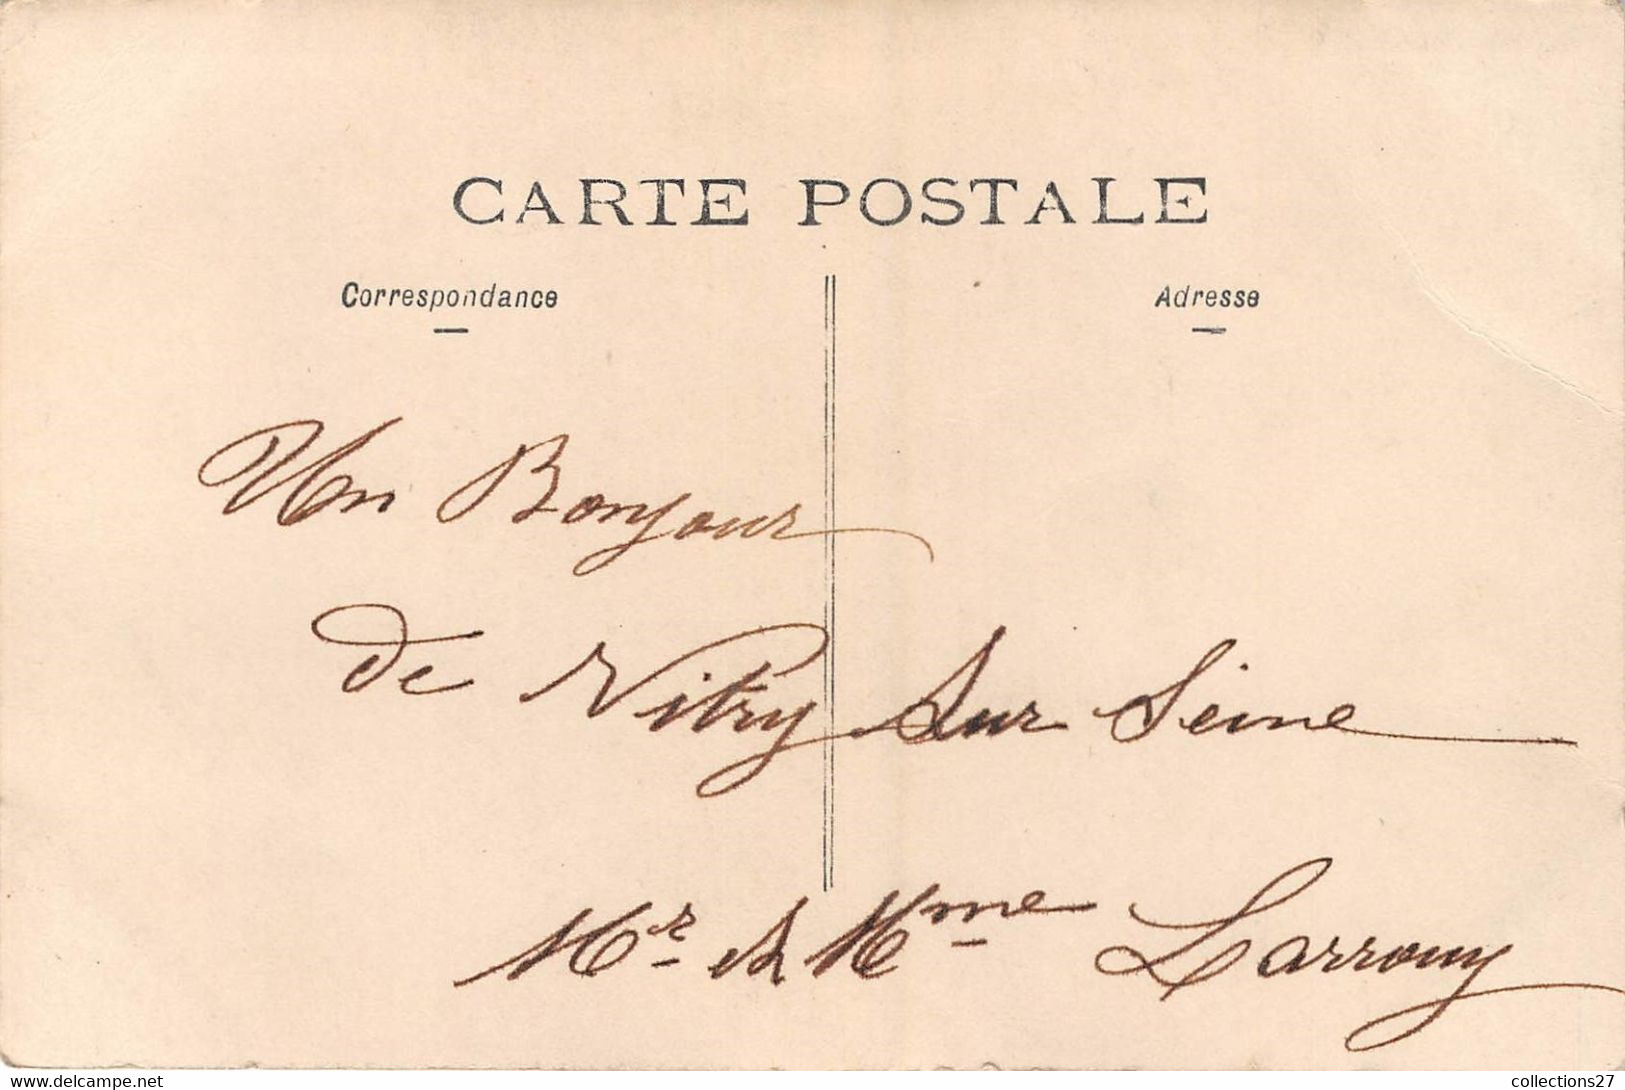 CARTE POSTALE
Correspondance
Adresse
Un Bonjour
de Vitry sur Seine
Mr et Mme Larrouy
www.delcampe.net
collections27